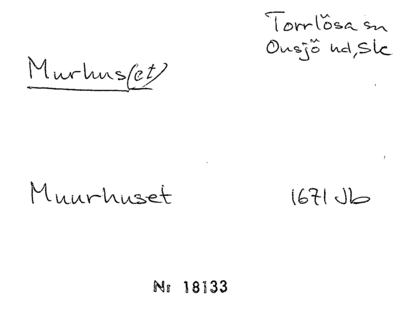 Torrlösa sn
Onsjö hd, Sk
Murhus(et)
Muurhuset 1671 Jb
Nr 18133